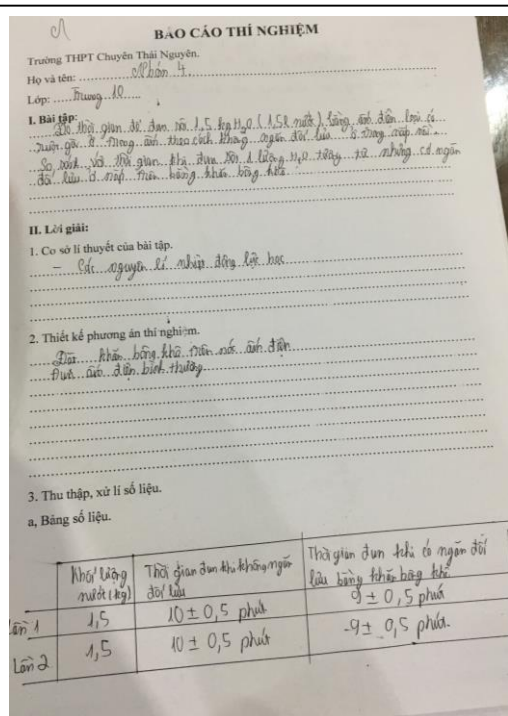 BÁO CÁO THÍ NGHIỆM
Trường THPT Chuyên Thái Nguyên.
Họ và tên: Nhóm 4
Lớp: Trung 10
I. Bài tập:
Đo thời gian để đun sôi 1,5 kg H2O (1,5l nước) bằng ấm điện loại có
ấm theo cách không ngăn đối lưu ở trong nắp nồi.
So sánh với thời gian khi đun sôi 1 lượng H2O tương tự nhưng có ngăn
đối lưu ở nắp trên bằng khăn bông khô
II. Lời giải:
1. Cơ sở lí thuyết của bài tập.
- Các nguyên lí nhiệt động lực học
2. Thiết kế phương án thí nghiệm.
khăn bông khô trên ấm điện
Đun ấm điện bình thường
3. Thu thập, xử lí số liệu.
a, Bảng số liệu.
Khối lượng nước (kg) Thời gian đun khi không ngăn đối lưu Thời gian đun khi có ngăn đối lưu bằng khăn bông khô
Lần 1 1,5 10 ± 0,5 phút 9 ± 0,5 phút
Lần 2 1,5 10 ± 0,5 phút 9 ± 0,5 phút.